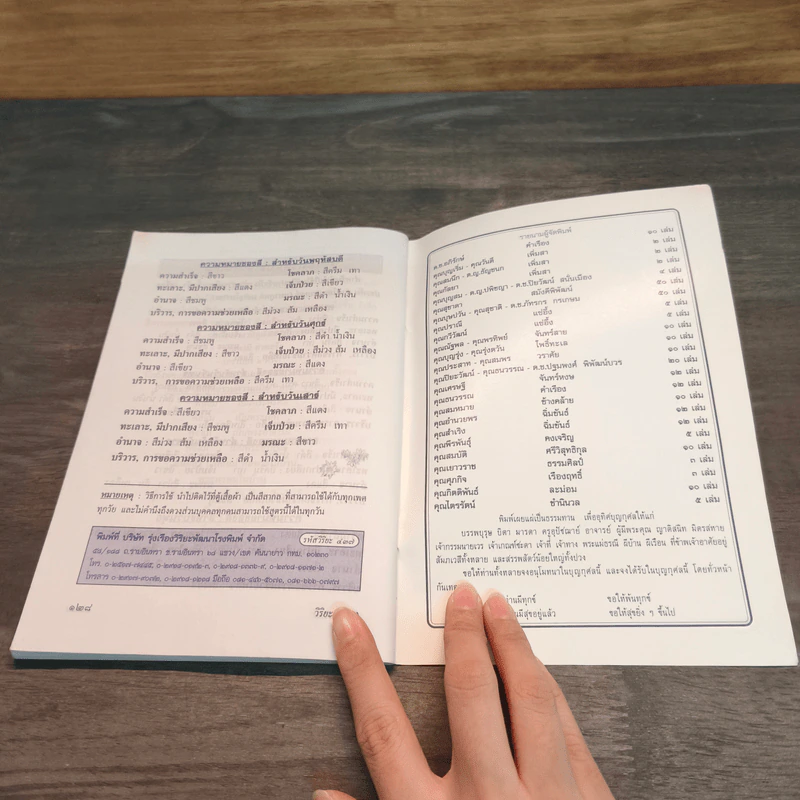 ความหมายของสี : สำหรับวันพฤหัสบดี
ความสำเร็จ : สีขาว โชคลาภ : สีครีม เทา
ทะเลาะ, มีปากเสียง : สีแดง เจ็บป่วย : สีเขียว
อำนาจ : สีชมพู มรณะ : สีดำ น้ำเงิน
บริวาร, การขอความช่วยเหลือ : สีม่วง ส้ม เหลือง
ความหมายของสี : สำหรับวันศุกร์
ความสำเร็จ : สีชมพู โชคลาภ : สีดำ น้ำเงิน
ทะเลาะ, มีปากเสียง : สีขาว เจ็บป่วย : สีม่วง ส้ม เหลือง
อำนาจ : สีเขียว มรณะ : สีแดง
บริวาร, การขอความช่วยเหลือ : สีครีม เทา
ความหมายของสี : สำหรับวันเสาร์
ความสำเร็จ : สีเขียว โชคลาภ : สีแดง
ทะเลาะ, มีปากเสียง : สีชมพู เจ็บป่วย : สีครีม เทา
อำนาจ : สีม่วง ส้ม เหลือง มรณะ : สีขาว
บริวาร, การขอความช่วยเหลือ : สีดำ น้ำเงิน
หมายเหตุ : วิธีการใช้ นำไปติดไว้ที่ตู้เสื้อผ้า เป็นสีสากล ที่สามารถใช้ได้กับทุกเพศ
ทุกวัย และไม่คำนึงถึงดวงส่วนบุคคลทุกคนสามารถใช้สูตรนี้ได้ในทุกวัน
พิมพ์ที่ บริษัท รุ่งเรืองวิริยะพัฒนาโรงพิมพ์ จำกัด รหัสวิริยะ ๔๓๗
ถ.รามอินทรา แขวง/เขต คันนายาว กทม. ๑๐๒๓๐
๑๒๘
วิริยะ
รายนามผู้จัดพิมพ์
ด.ช.อภิรักษ์ คำเรือง ๑๐ เล่ม
คุณบุญเรือน - คุณวันดี เพิ่มสา ๒ เล่ม
คุณสมนึก - ด.ญ.ธัญชนก เพิ่มสา ๒ เล่ม
คุณกัลยา เพิ่มสา ๒ เล่ม
คุณบุญสม - ด.ญ.ปพิชญา - ด.ช.ปิยวัฒน์ สนั่นเมือง ๔ เล่ม
คุณสุชาดา สมบัติพิพัฒน์ ๕๐ เล่ม
คุณบุษปวัน - คุณสุชาติ - ด.ช.ภัทรกร กรเกษม ๕๐ เล่ม
คุณปราณี แซ่อึ้ง ๕ เล่ม
คุณทวีวัฒน์ แซ่อึ้ง ๕ เล่ม
คุณณัฐพล - คุณพรทิพย์ จันทร์สาย ๑๐ เล่ม
คุณบุญรุ่ง - คุณรุ่งตวัน โพธิ์ทะเล ๑๐ เล่ม
คุณประสาท - คุณสมพร วราศัย ๑๐ เล่ม
คุณปิยะวัฒน์ - คุณธนวรรณ - ด.ช.ปฐมพงศ์ พิพัฒน์บวร ๒๐ เล่ม
คุณเศรษฐี จันทร์หงษ ๑๒ เล่ม
คุณธนวรรณ คำเรือง ๑๒ เล่ม
คุณสมหมาย ช้างคล้าย ๑๐ เล่ม
คุณอำนวยพร ฉิ่มขันธ์ ๑๒ เล่ม
คุณสำเริง ฉิ่มขันธ์ ๑๒ เล่ม
คุณพีรพันธุ์ คงเจริญ ๕ เล่ม
คุณสมบัติ ศรีวิสุทธิกุล ๑๐ เล่ม
คุณเยาวราช ธรรมศิลป์ ๓ เล่ม
คุณศุภกิจ เรืองฤทธิ์ ๓ เล่ม
คุณกิตติพันธุ์ ละม่อม ๑๐ เล่ม
คุณไตรรัตน์ ชำนินวล ๕ เล่ม
พิมพ์เผยแผ่เป็นธรรมทาน เพื่ออุทิศบุญกุศลให้แก่
บรรพบุรุษ บิดา มารดา ครูอุปัชฌาย์ อาจารย์ ผู้มีพระคุณ ญาติสนิท มิตรสหาย
เจ้ากรรมนายเวร เจ้าเกณฑ์ชะตา เจ้าที่ เจ้าทาง พระแม่ธรณี ผีบ้าน ผีเรือน ที่ข้าพเจ้าอาศัยอยู่
สัมภเวสีทั้งหลาย และสรรพสัตว์น้อยใหญ่ทั้งปวง
ขอให้ท่านทั้งหลายจงอนุโมทนาในบุญกุศลนี้ และจงได้รับในบุญกุศลนี้ โดยทั่วหน้า
กันเทอ
ขอให้พ้นทุกข์
มีสุขอยู่แล้ว ขอให้สุขยิ่ง ๆ ขึ้นไป